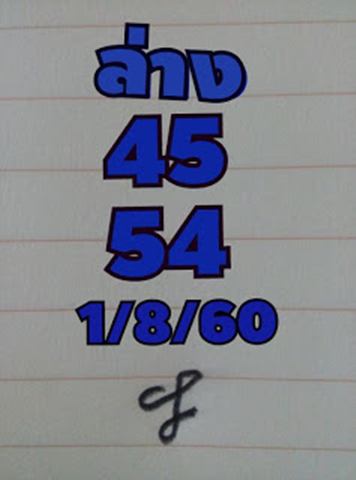 ล่าง
45
54
1/8/60